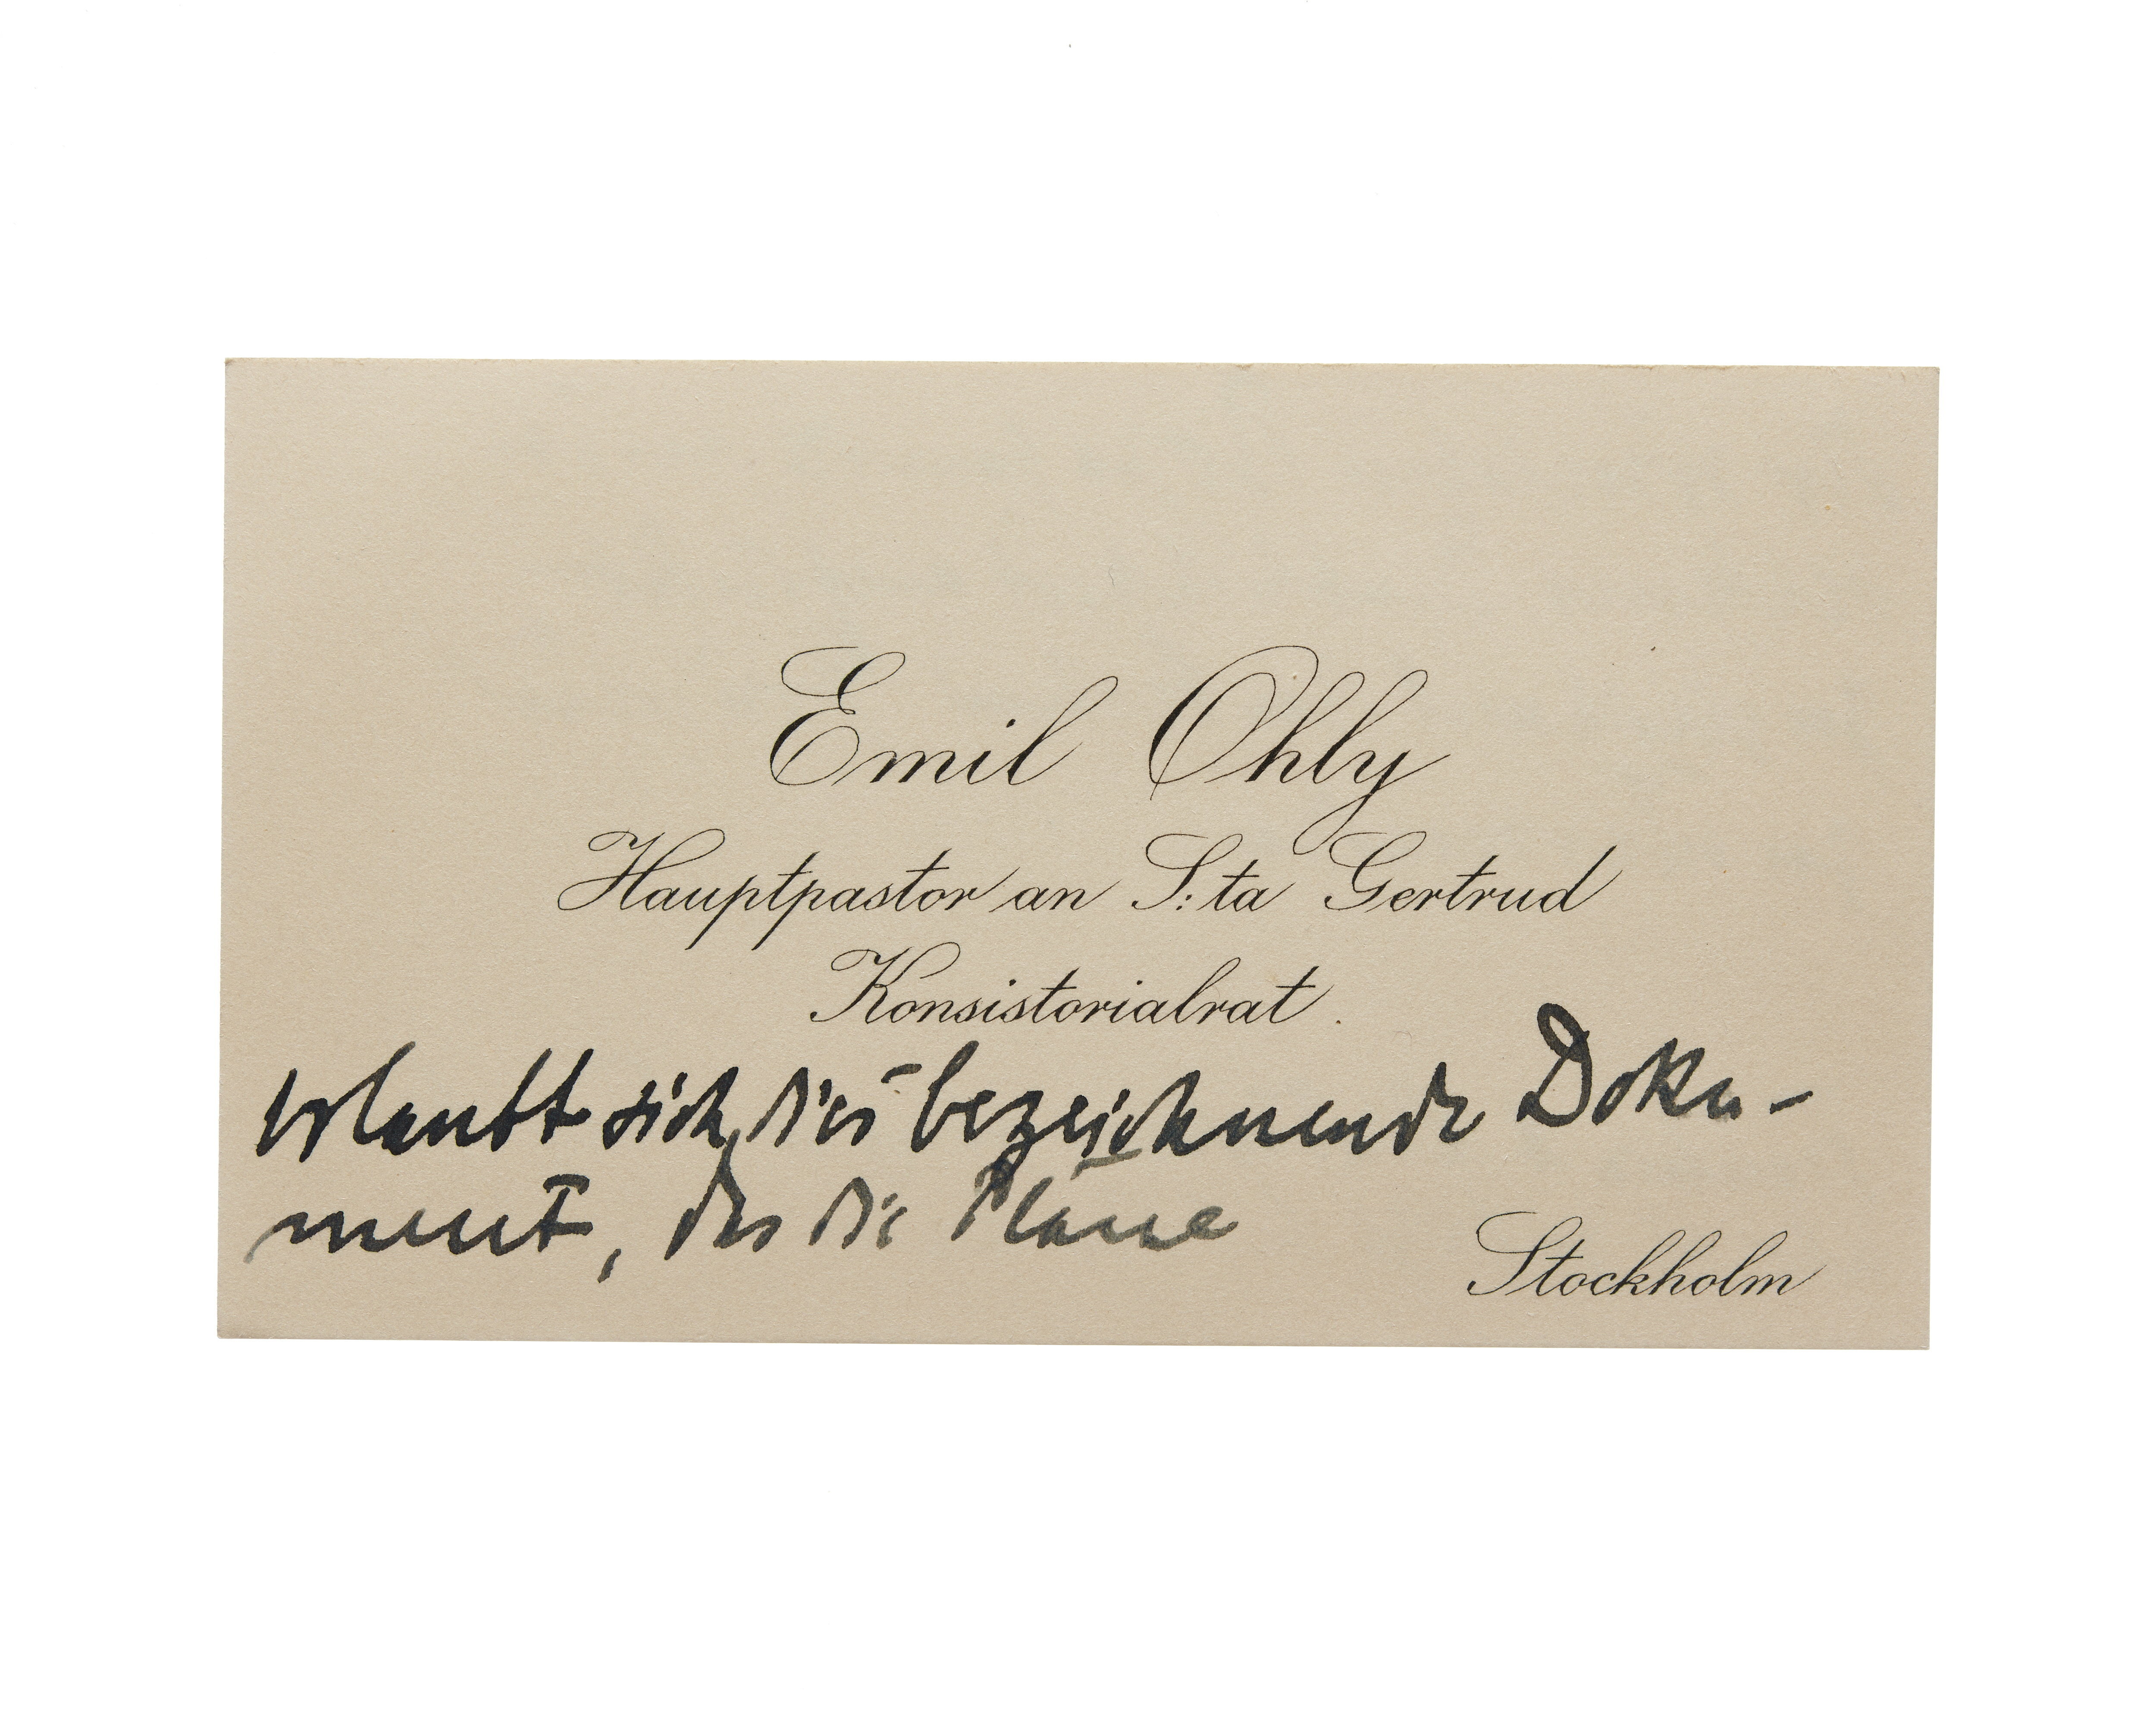 Emil Ohly
Hauptpastor an S:ta Gertrud
Konsistorialrat.
erlaubt sich dies bezeichnende Doku-
ment, das die Pläne
Stockholm